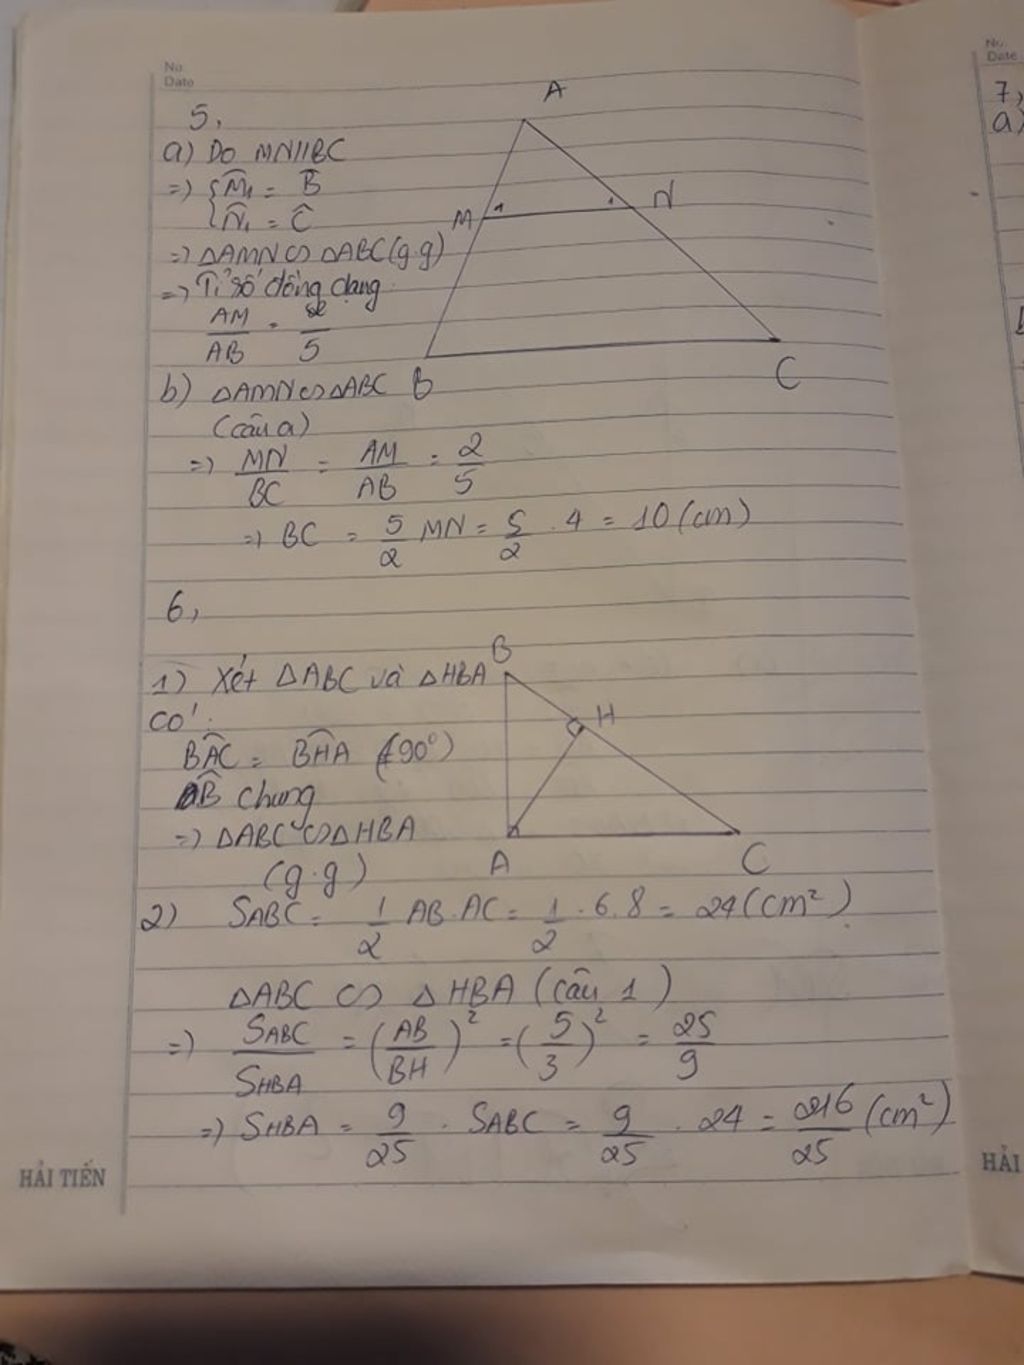 No
Date
5,
A
a) Do MN//BC
=> { M̂₁ = B̂
{ N̂₁ = Ĉ
M 1 1 N
=> △AMN ∽ △ABC (g.g)
=> Tỉ số đồng dạng
AM/AB = 2/5
B C
b) △AMN ∽ △ABC
(câu a)
=> MN/BC = AM/AB = 2/5
=> BC = 5/2 MN = 5/2 . 4 = 10 (cm)
6,
B
1) Xét △ABC và △HBA
có:
H
BÂC = BĤA (=90°)
B̂ chung
=> △ABC ∽ △HBA
A C
(g.g)
2) SABC = 1/2 AB.AC = 1/2 . 6.8 = 24 (cm²)
△ABC ∽ △HBA (câu 1)
=> SABC/SHBA = (AB/BH)² = (5/3)² = 25/9
=> SHBA = 9/25 . SABC = 9/25 . 24 = 216/25 (cm²)
HẢI TIẾN
No.
Date
7,
a)
HẢI